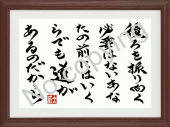 後ろを振り向く
必要はないあな
たの前にはいく
らでも道が
あるのだから
Not copying